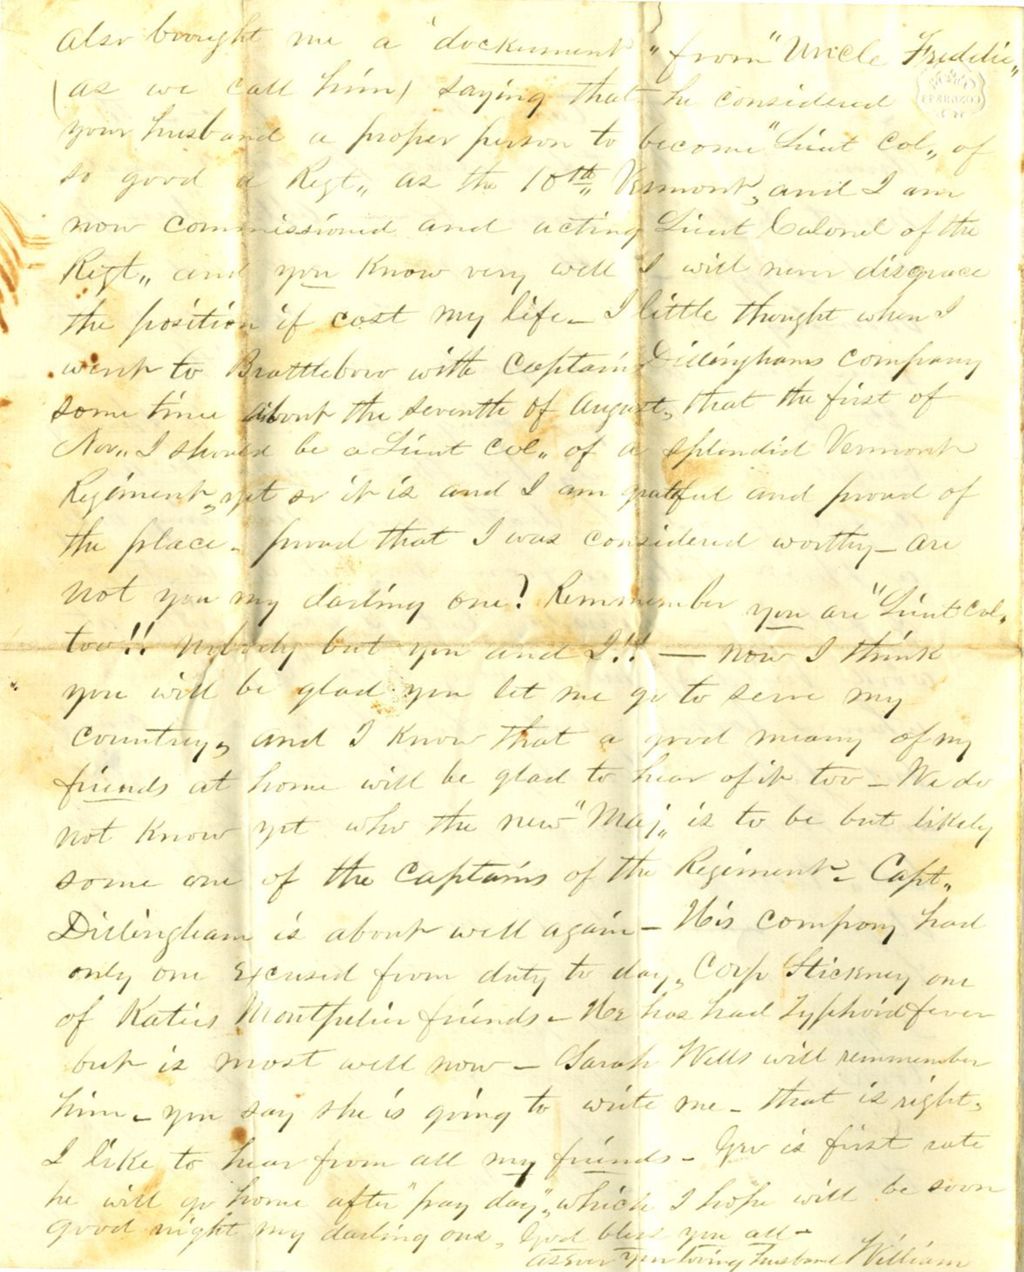 also brought me a "dockument" from "Uncle Freddie"
(as we call him) saying that he considered
your husband a proper person to become "Lieut Col" of
so good a Regt,, as the 10th,, Vermont, and I am
now commissioned and acting Lieut Colonel of the
Regt,, and you know very well I will never disgrace
the position if cost my life_ I little thought when I
went to Brattleboro with Captain Dillinghams company
some time about the seventh of August, that the first of
Nov,, I should be a Lieut Col,, of a splendid Vermont
Regiment, yet so it is and I am grateful and proud of
the place_ proud that I was considered worthy_ are
not you my darling one? Remmember you are "Lieut Col,,
too!! Nobody but you and I!! — now I think
you will be glad you let me go to serve my
country, and I know that a good meany of my
friends at home will be glad to hear of it too_ We do
not know yet who the new "Maj,, is to be but likely
some one of the Captains of the Regiment_ Capt,,
Dillingham is about well again_ His company had
only one excused from duty to day, Corp Stickney one
of Katies Montpelier friends_ He has had Typhoid fever
but is most well now_ Sarah Wells will remmember
him_ you say she is going to write me_ that is right,
I like to hear from all my friends_ is first rate
he will go home after "pay day", which I hope will be soon
good night my darling one, God bless you all_
as ever your loving Husband William